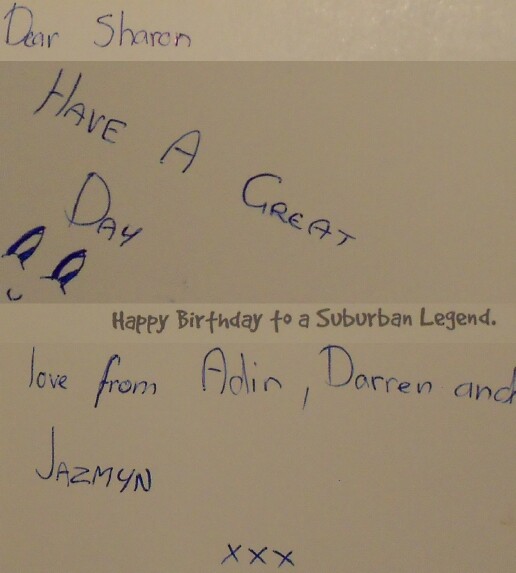 Dear Sharon
HAVE A GREAT
DAY
Happy Birthday to a Suburban Legend.
love from Adin, Darren and
JAZMYN
xxx